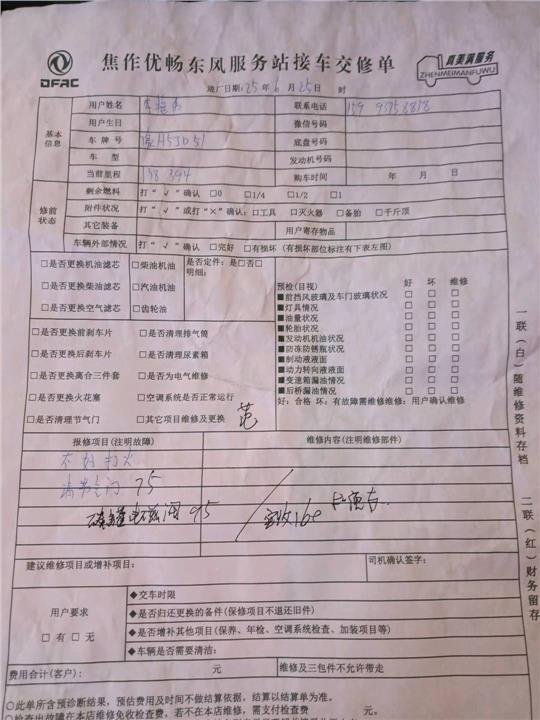 DFAC
焦作优畅东风服务站接车交修单
真美满服务
ZHENMEIMANFUWU
进厂日期:25年6月25日 时
基本信息
用户姓名
联系电话
用户生日
微信号码
车牌号
豫H5JD51
底盘号码
车 型
发动机号码
当前里程
138394
购车时间
年 月 日
修前状态
剩余燃料
打“√”确认 □0 □1/4 □1/2 □1
附件状况
打“√”或打“×”确认:□工具 □灭火器 □备胎 □千斤顶
其它装备
用户寄存物品
车辆外部情况
打“√”确认 □完好 □有损坏(有损坏部位标注有下表左图)
□是否更换机油滤芯
□柴油机油
□是否更换柴油滤芯
□汽油机油
□是否更换空气滤芯
□齿轮油
是否定件:是□否□
明细:
□是否更换前刹车片
□是否清理排气筒
□是否更换后刹车片
□是否清理尿素箱
□是否更换离合三件套
□是否为电气维修
□是否更换火花塞
□空调系统是否正常运行
□是否清节气门
□其它项目维修及更换
范
预检(目视) 好 坏 维修
■前挡风玻璃及车门玻璃状况 □ □ □
■灯具情况 □ □ □
■油量状况 □ □ □
■轮胎状况 □ □ □
■发动机机油状况 □ □ □
■防冻防锈瓶状况 □ □ □
■制动液液面 □ □ □
■动力转向液液面 □ □ □
■变速箱漏油情况 □ □ □
■后桥漏油情况 □ □ □
好:合格 坏:有故障需维修维修:用户确认维修
报修项目(注明故障)
维修内容(注明维修部件)
不好打火
清节气门 75
碳罐电磁阀 95
实收160
建议维修项目或增补项目:
司机确认签字:
用户要求
□有 □无
◆交车时限
◆是否归还更换的备件(保修项目不退还旧件)
◆是否增补其他项目(保养、年检、空调系统检查、加装项目等)
◆车辆是否需要清洁:
费用合计(客户): 元
维修及三包件不允许带走
○此单所含预诊断结果,预估费用及时间不做结算依据,结算以结算单为准。
一联(白)随维修资料存档
二联(红)财务留存